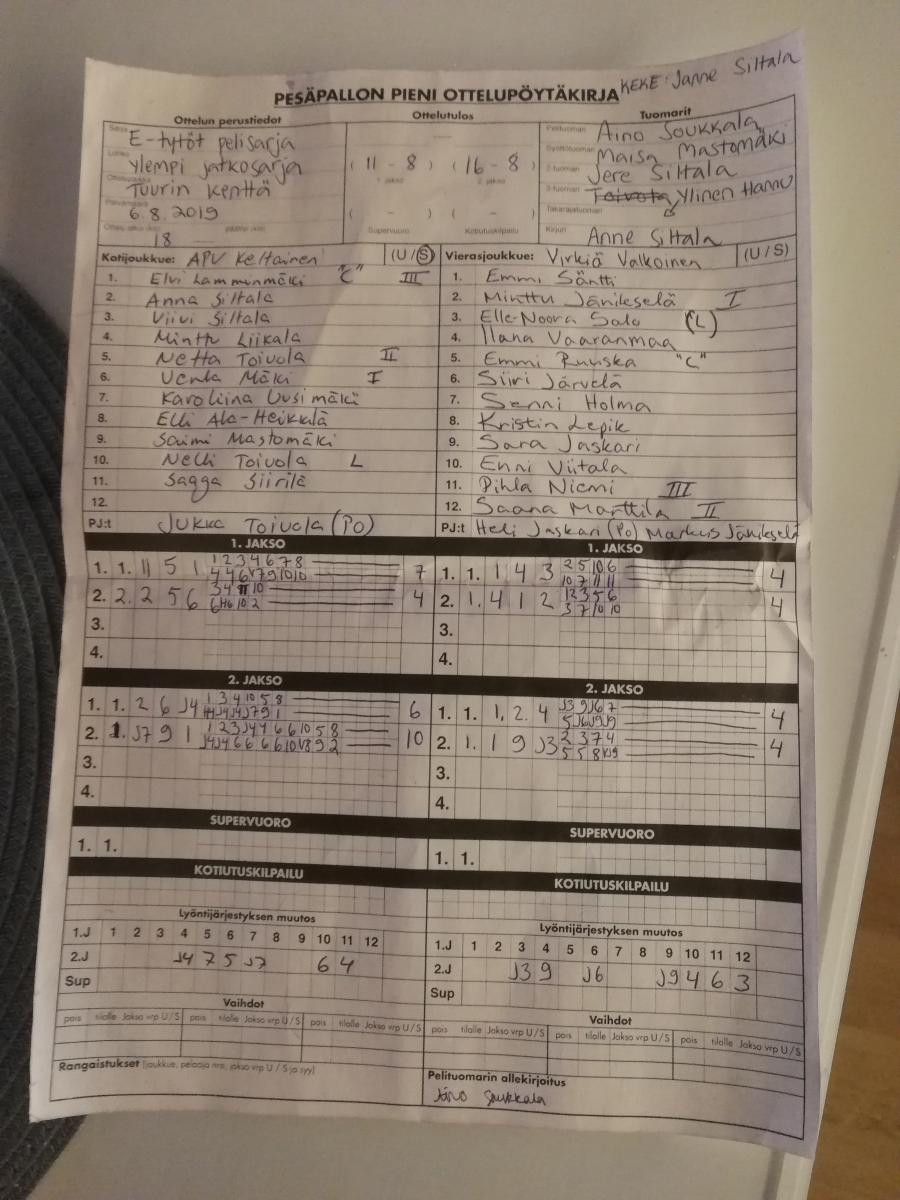 KEKE: Janne Siltala
PESÄPALLON PIENI OTTELUPÖYTÄKIRJA
Ottelun perustiedot Ottelutulos Tuomarit
E-tytöt pelisarja
Ylempi jatkosarja
Tuurin kenttä
6.8.2019
18
(11 - 8) (16 - 8)
1. jakso 2. jakso
( - ) ( - )
Supervuoro Kotiutuskilpailu
Pelituomari Aino Soukkala
Syöttötuomari Maisa Mastomäki
2-tuomari Jere Siltala
3-tuomari Toivota Ylinen Hannu
Takarajatuomari
Kirjuri Anne Siltala
Kotijoukkue: APV Keltainen (U/S)
1. Elvi Lamminmäki "C" III
2. Anna Siltala
3. Viivi Siltala
4. Minttu Liikala
5. Netta Toivola II
6. Venla Mäki I
7. Karoliina Uusimäki
8. Elli Ala-Heikkilä
9. Saimi Mastomäki
10. Nelli Toivola L
11. Sagga Siirilä
12.
PJ:t Jukka Toivola (PO)
Vierasjoukkue: Virkiä Valkoinen (U/S)
1. Emmi Säntti
2. Minttu Jänikeselä I
3. Elle-Noora Salo (L)
4. Ilana Vaaranmaa
5. Emmi Ruuska "C"
6. Siiri Järvelä
7. Senni Holma
8. Kristin Lepik
9. Sara Jaskari
10. Enni Viitala
11. Pihla Niemi III
12. Saana Marttila II
PJ:t Heli Jaskari (Po) Markus Jänikeselä
1. JAKSO
1. 1. 11 5 1 1 2 3 4 6 7 8 7
2. 2. 2 5 6 4
3.
4.
1. JAKSO
1. 1. 1 4 3 2 5 10 6 4
10 7 11 11
2. 1. 4 1 2 4
3 7 10 10
3.
4.
2. JAKSO
1. 1. 2 6 J4 1 3 4 10 5 8 6
2. 1. J7 9 1 1 2 3 J4 4 6 6 10 5 8 10
3.
4.
2. JAKSO
1. 1. 1, 2. 4 J3 9 J6 7 4
5 J6 J9 J9
2. 1. 1 9 J3 2 3 7 4 4
3.
4.
SUPERVUORO
1. 1.
SUPERVUORO
1. 1.
KOTIUTUSKILPAILU
KOTIUTUSKILPAILU
Lyöntijärjestyksen muutos
1.J 1 2 3 4 5 6 7 8 9 10 11 12
2.J J4 7 5 J7 6 4
Sup
Lyöntijärjestyksen muutos
1.J 1 2 3 4 5 6 7 8 9 10 11 12
2.J J3 9 J6 J9 4 6 3
Sup
Vaihdot
pois tilalle Jakso vrp U/S pois tilalle Jakso vrp U/S pois tilalle Jakso vrp U/S
Vaihdot
pois tilalle Jakso vrp U/S pois tilalle Jakso vrp U/S pois tilalle Jakso vrp U/S
Rangaistukset (joukkue, pelaaja nro, jakso vrp U / S ja syy)
Pelituomarin allekirjoitus
Aino Soukkala